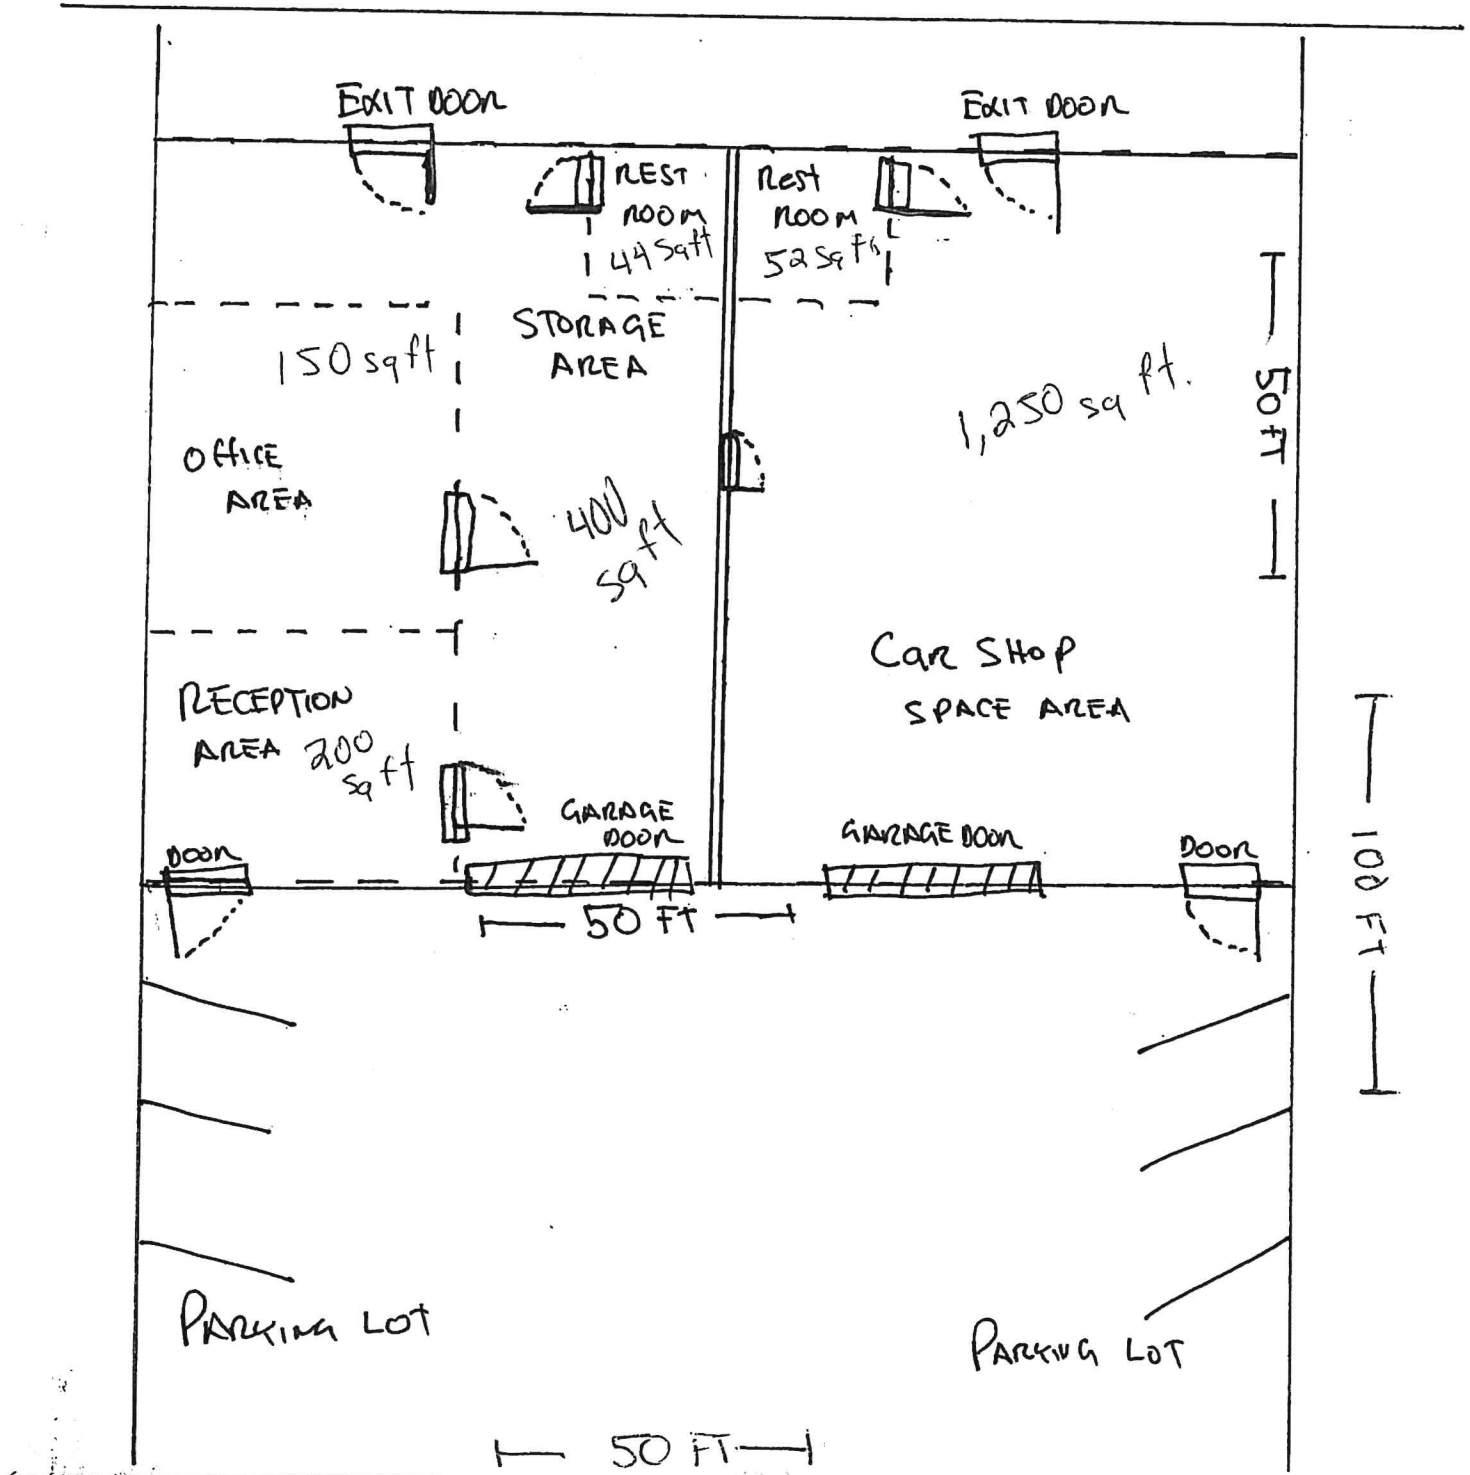 EXIT DOOR
EXIT DOOR
REST
ROOM
44 sqft
Rest
ROOM
52 sq ft
STORAGE
AREA
150 sqft
1,250 sq ft.
50 FT
OFFICE
AREA
400
sq ft
CAR SHOP
SPACE AREA
RECEPTION
AREA 200
sq ft
GARAGE
DOOR
GARAGE DOOR
DOOR
DOOR
100 FT
50 FT
PARKING LOT
PARKING LOT
50 FT